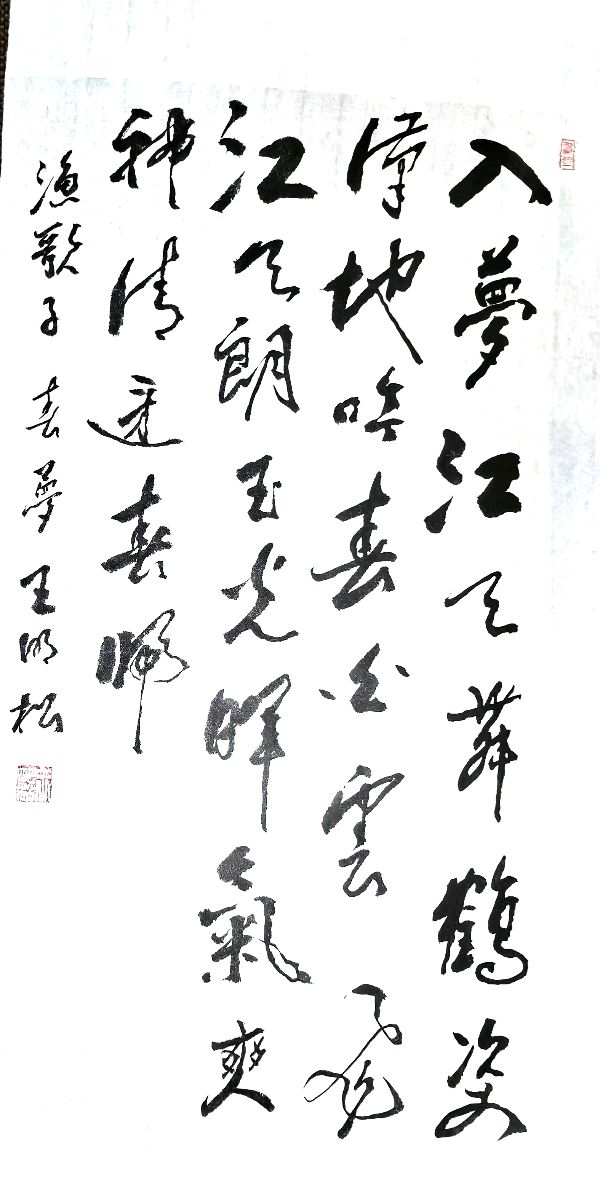 入夢江天舞鶴姿
地吟春白雲飛
江天朗玉光暉氣爽
神清春歸
漁歌子 春夢 王明松